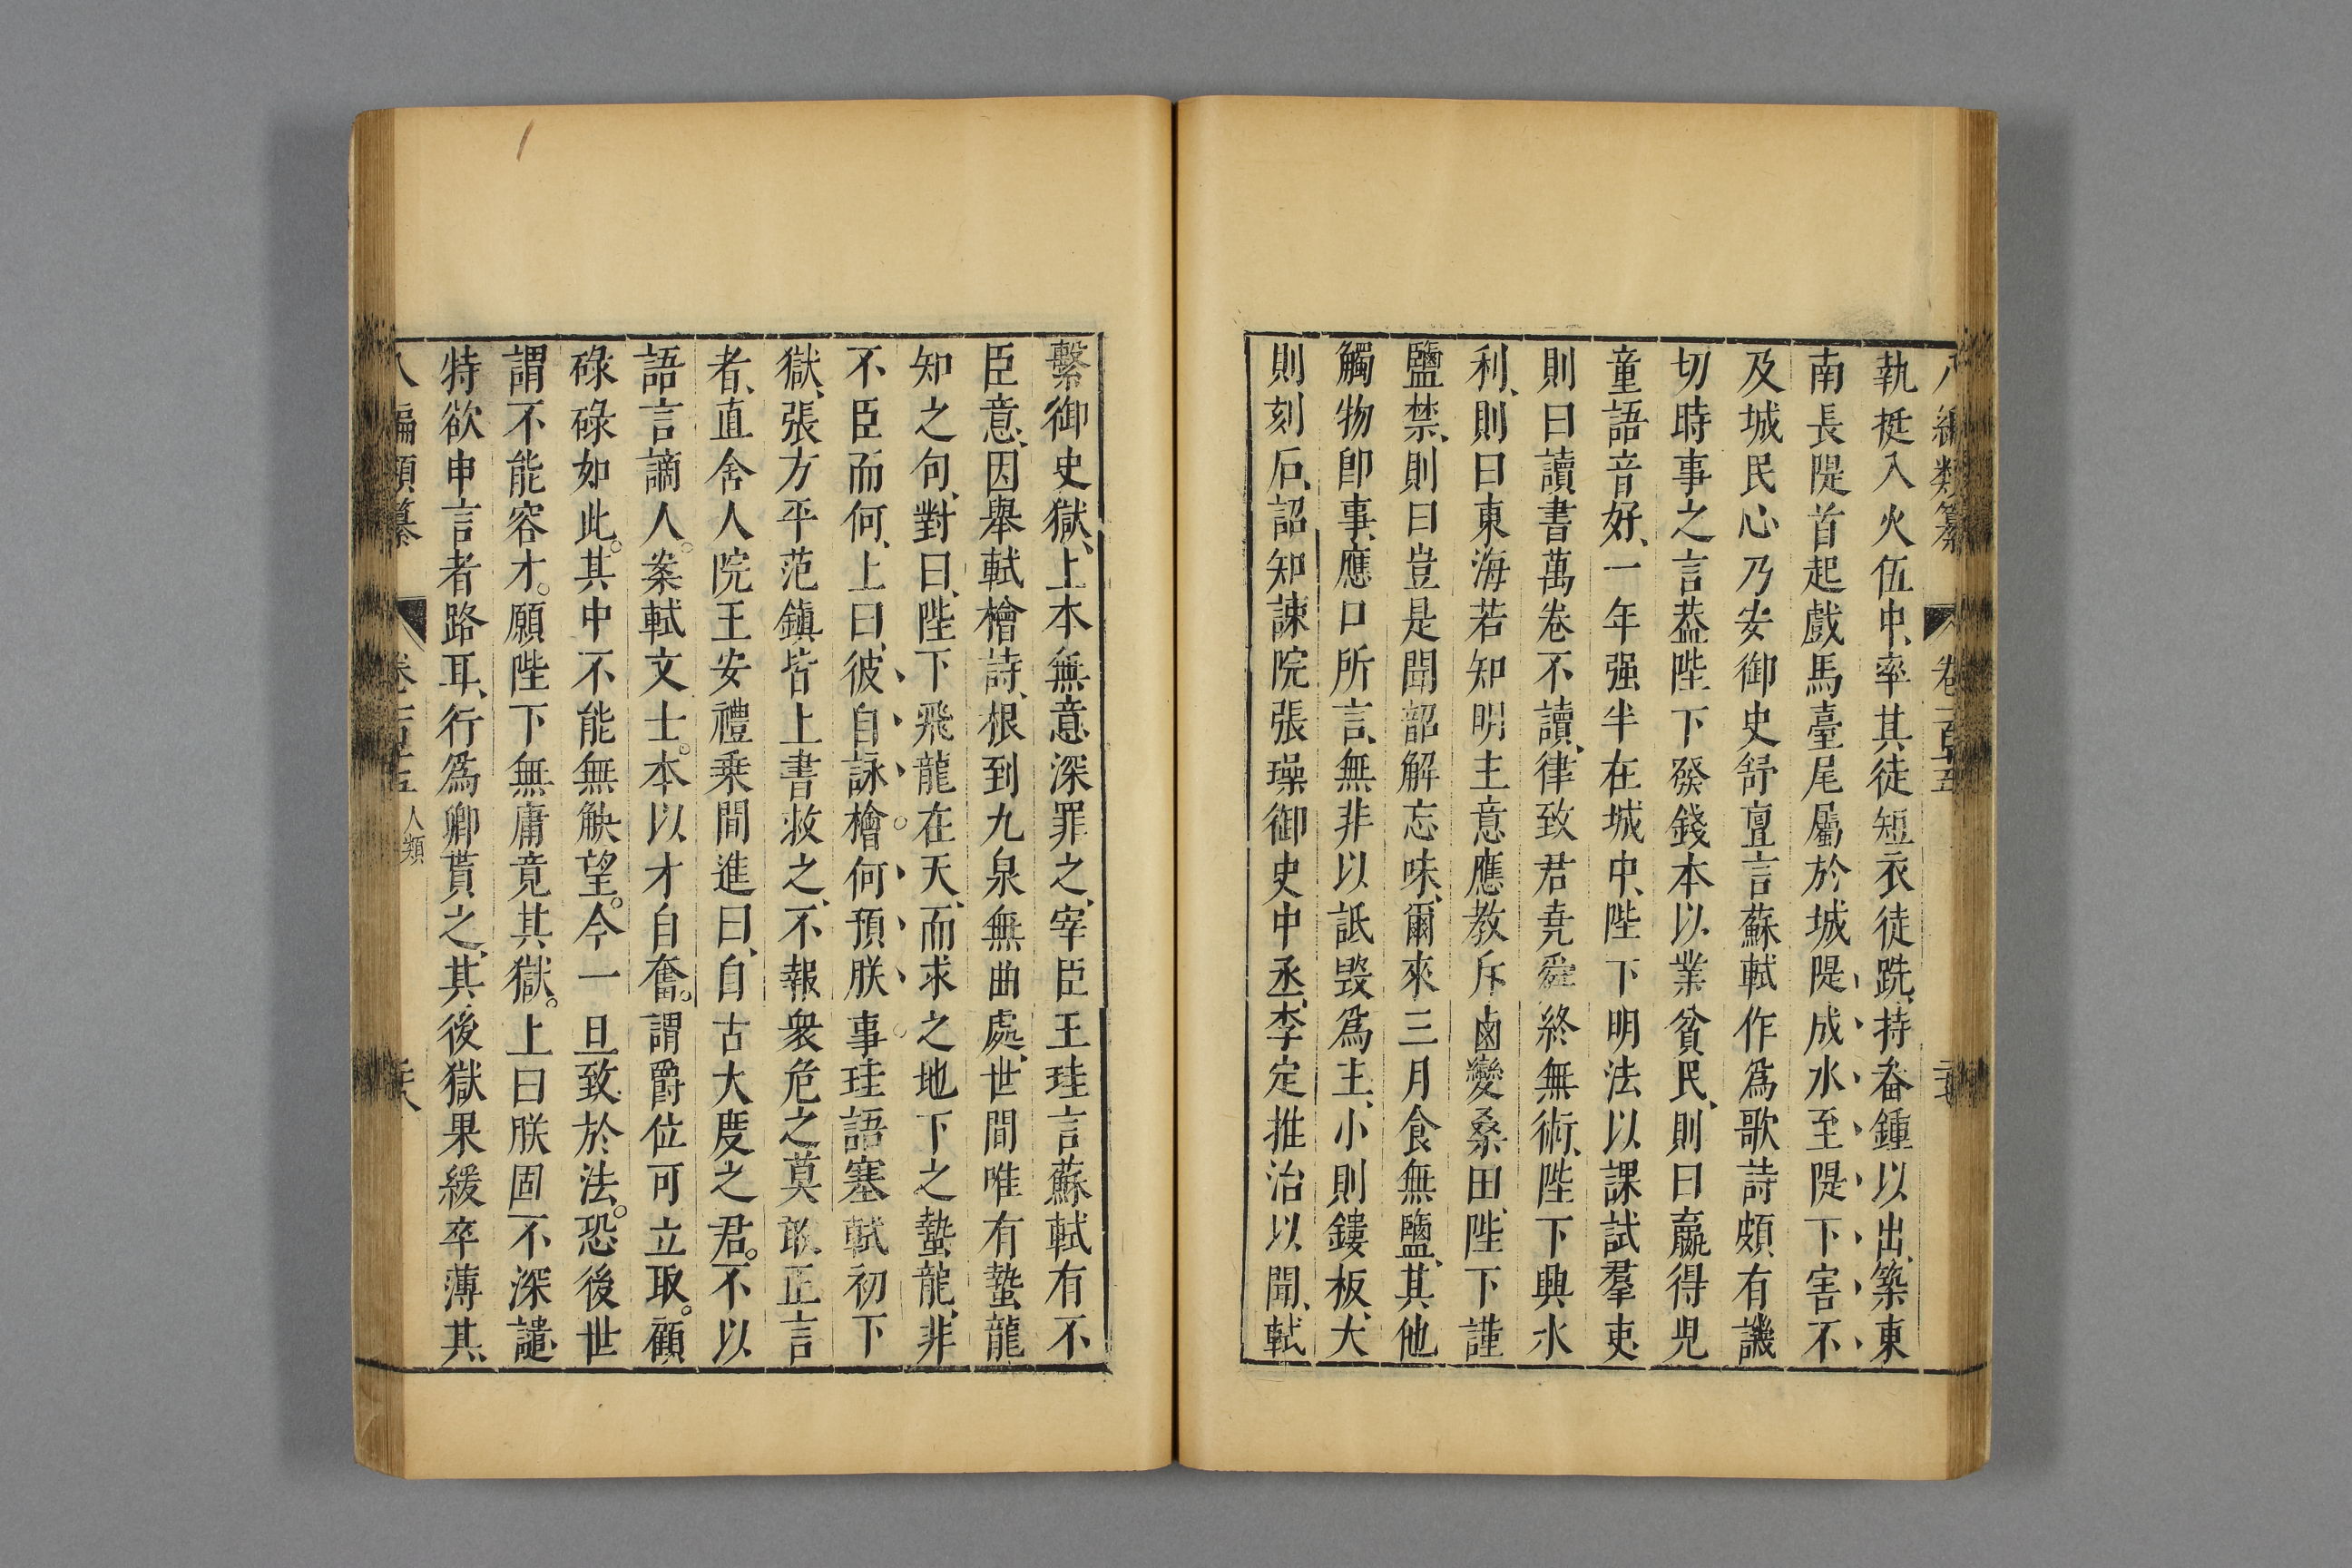 八編類纂 卷一百十五
執梃入火伍中、率其徒短衣徒跣、持畚鍾以出、築東
南長隄首起戲馬臺尾屬於城隄成水至隄下害不
及城民心乃安御史舒亶言蘇軾作爲歌詩頗有譏
切時事之言葢陛下發錢本以業貧民、則曰贏得兒
童語音好、一年强半在城中、陛下明法以課試羣吏
則曰讀書萬卷不讀、律致君堯舜終無術、陛下興水
利、則曰東海若知明主意應教斥鹵變桑田、陛下謹
鹽禁、則曰豈是聞韶解忘味、爾來三月食無鹽、其他
觸物卽事、應口所言、無非以詆毀爲主、小則鏤板、大
則刻石、詔知諫院張璪御史中丞李定推治以聞、軾
繫御史獄、上本無意深罪之、宰臣王珪言蘇軾有不
臣意、因舉軾檜詩、根到九泉無曲處、世間唯有蟄龍
知之句、對曰、陛下飛龍在天、而求之地下之蟄龍、非
不臣而何、上曰、彼自詠檜何預朕事珪語塞軾初下
獄、張方平范鎮皆上書救之、不報衆危之莫敢正言
者、直舍人院王安禮乗間進曰、自古大度之君。不以
語言謫人。案軾文士。本以才自奮。謂爵位可立取。顧
碌碌如此。其中不能無觖望。今一旦致於法。恐後世
謂不能容才。願陛下無庸竟其獄。上曰朕固不深譴
特欲申言者路耳、行爲卿貰之、其後獄果緩卒薄其
八編類纂 卷一百十五 人類